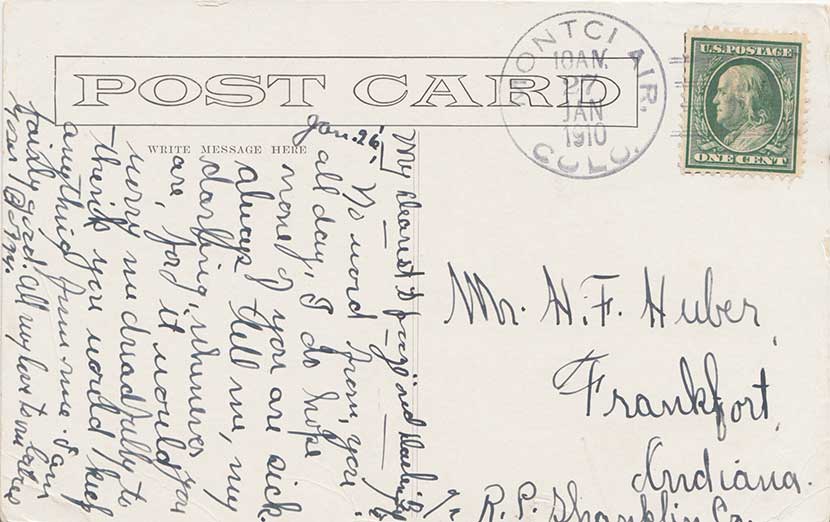 POST CARD
MONTCLAIR,
10 AM.
27
JAN
1910
COLO.
U.S. POSTAGE
ONE CENT
WRITE MESSAGE HERE
Jan. 26,
My dearest
No word from you
all day, I do hope
you are sick.
always tell me, my
darling, whenever you
are, for it would
worry me dreadfully to
think you would keep
anything from me. I am
fairly good. All my love to
Your
Mr. H. F. Huber,
Frankfort,
Indiana.
R. P. Shanklin Co.